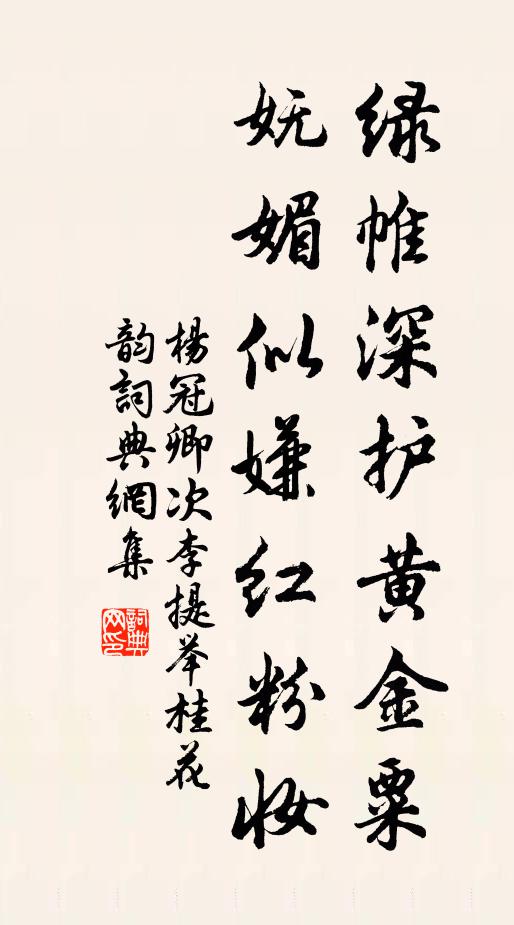 绿帷深护黄金粟
妩媚似嫌红粉妆
楊冠卿次李提举桂花
韵詞典網集
詞典网印